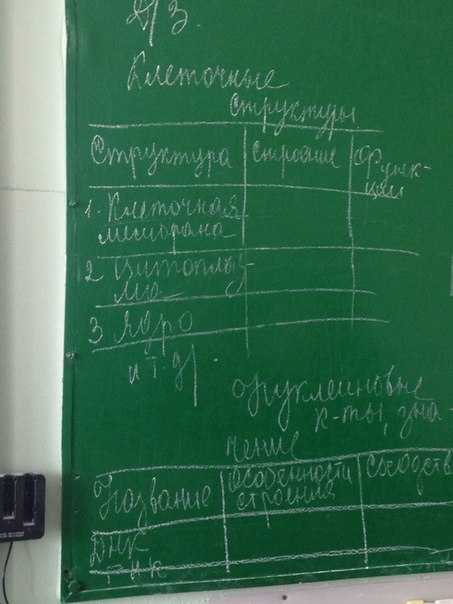 Д/З.
Клеточные
структуры
Структура строение Функ-
ции
1. Клеточная
мембрана
2 Цитоплаз-
ма
3 Ядро
и т д.
нуклеиновые
к-ты, зна-
чение
Название особенности
строения
ДНК
РНК